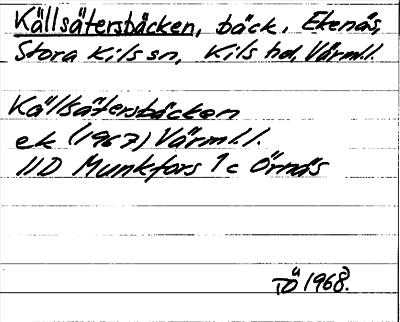 Källsätersbäcken, bäck, Ekenäs,
Stora Kils sn, Kils hd, Värml.l.
Källsätersbäcken
ek (1967) Värml.l.
11D Munkfors 1c Örnäs
TÖ 1968.